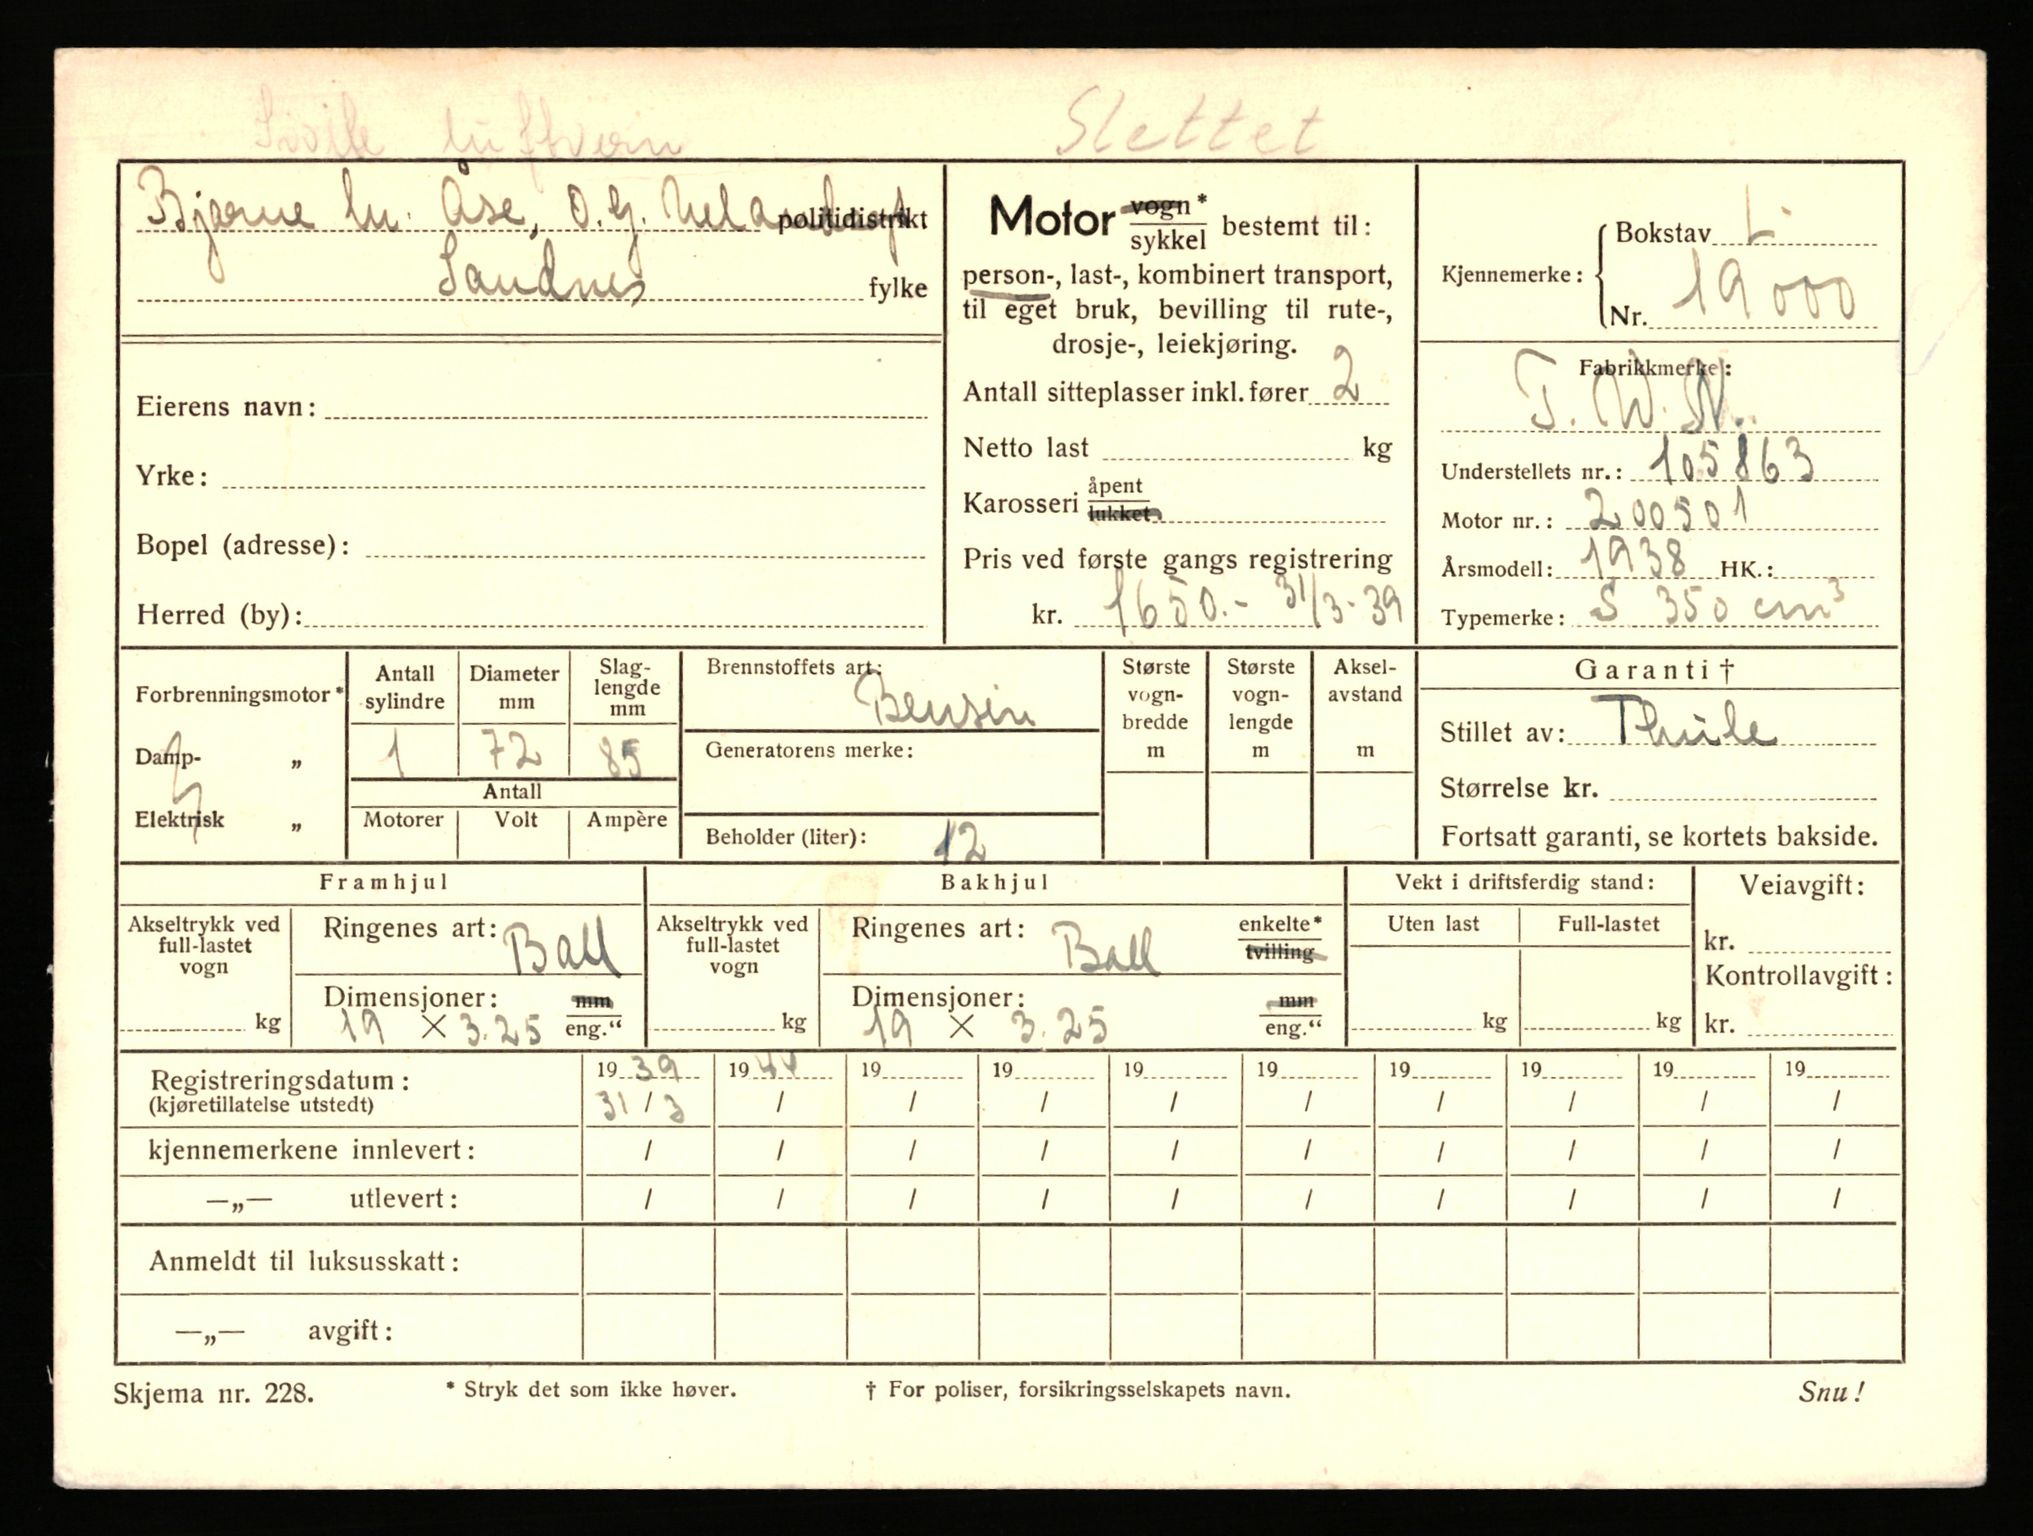 Sivile luftvern
Slettet
Bjarne M. Åse, O. G. politidistrikt
Sandnes
fylke
Eierens navn:
Yrke:
Bopel (adresse):
Herred (by):
Motor vogn* sykkel bestemt til:
person-, last-, kombinert transport,
til eget bruk, bevilling til rute-,
drosje-, leiekjøring.
Antall sitteplasser inkl. fører 2
Netto last kg
Karosseri åpent lukket
Pris ved første gangs registrering
kr. 1650.- 31/3-39
Kjennemerke: Bokstav L
Nr. 19000
Fabrikkmerke:
T. W. N.
Understellets nr.: 105863
Motor nr.: 200501
Årsmodell: 1938 HK.:
Typemerke: S 350 cm³
Forbrenningsmotor *
Damp- „
Elektrisk „
Antall sylindre
1
Diameter mm
72
Slag-lengde mm
85
Antall
Motorer Volt Ampère
Brennstoffets art:
Bensin
Generatorens merke:
Beholder (liter): 12
Største vogn-bredde m
Største vogn-lengde m
Aksel-avstand m
Garanti †
Stillet av: Thule
Størrelse kr.
Fortsatt garanti, se kortets bakside.
Framhjul
Akseltrykk ved full-lastet vogn
kg
Ringenes art: Ball
Dimensjoner: mm
19 × 3.25 eng.“
Bakhjul
Akseltrykk ved full-lastet vogn
kg
Ringenes art: Ball enkelte* tvilling
Dimensjoner: mm
19 × 3.25 eng.“
Vekt i driftsferdig stand:
Uten last Full-lastet
kg kg
Veiavgift:
kr.
Kontrollavgift:
kr.
Registreringsdatum: 19 39 19 44 19 19 19 19 19 19 19 19
(kjøretillatelse utstedt) 31/3 / / / / / / / / /
kjennemerkene innlevert: / / / / / / / / / /
—„— utlevert: / / / / / / / / / /
Anmeldt til luksusskatt:
—„— avgift:
Skjema nr. 228.
* Stryk det som ikke høver.
† For poliser, forsikringsselskapets navn.
Snu!